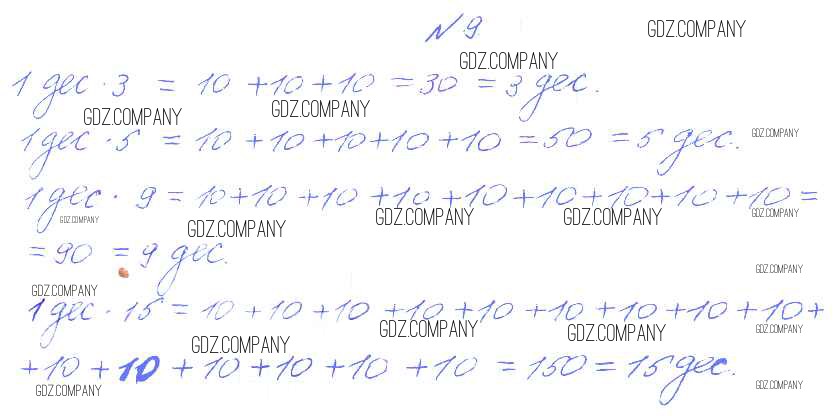 № 9.
GDZ.COMPANY
GDZ.COMPANY
1 дес · 3 = 10 + 10 + 10 = 30 = 3 дес.
GDZ.COMPANY GDZ.COMPANY
1 дес · 5 = 10 + 10 + 10 + 10 + 10 = 50 = 5 дес.
GDZ.COMPANY
1 дес · 9 = 10 + 10 + 10 + 10 + 10 + 10 + 10 + 10 + 10 =
GDZ.COMPANY GDZ.COMPANY GDZ.COMPANY GDZ.COMPANY GDZ.COMPANY
= 90 = 9 дес.
GDZ.COMPANY
GDZ.COMPANY
1 дес · 15 = 10 + 10 + 10 + 10 + 10 + 10 + 10 + 10 + 10 +
GDZ.COMPANY GDZ.COMPANY GDZ.COMPANY GDZ.COMPANY
+ 10 + 10 + 10 + 10 + 10 + 10 = 150 = 15 дес.
GDZ.COMPANY GDZ.COMPANY